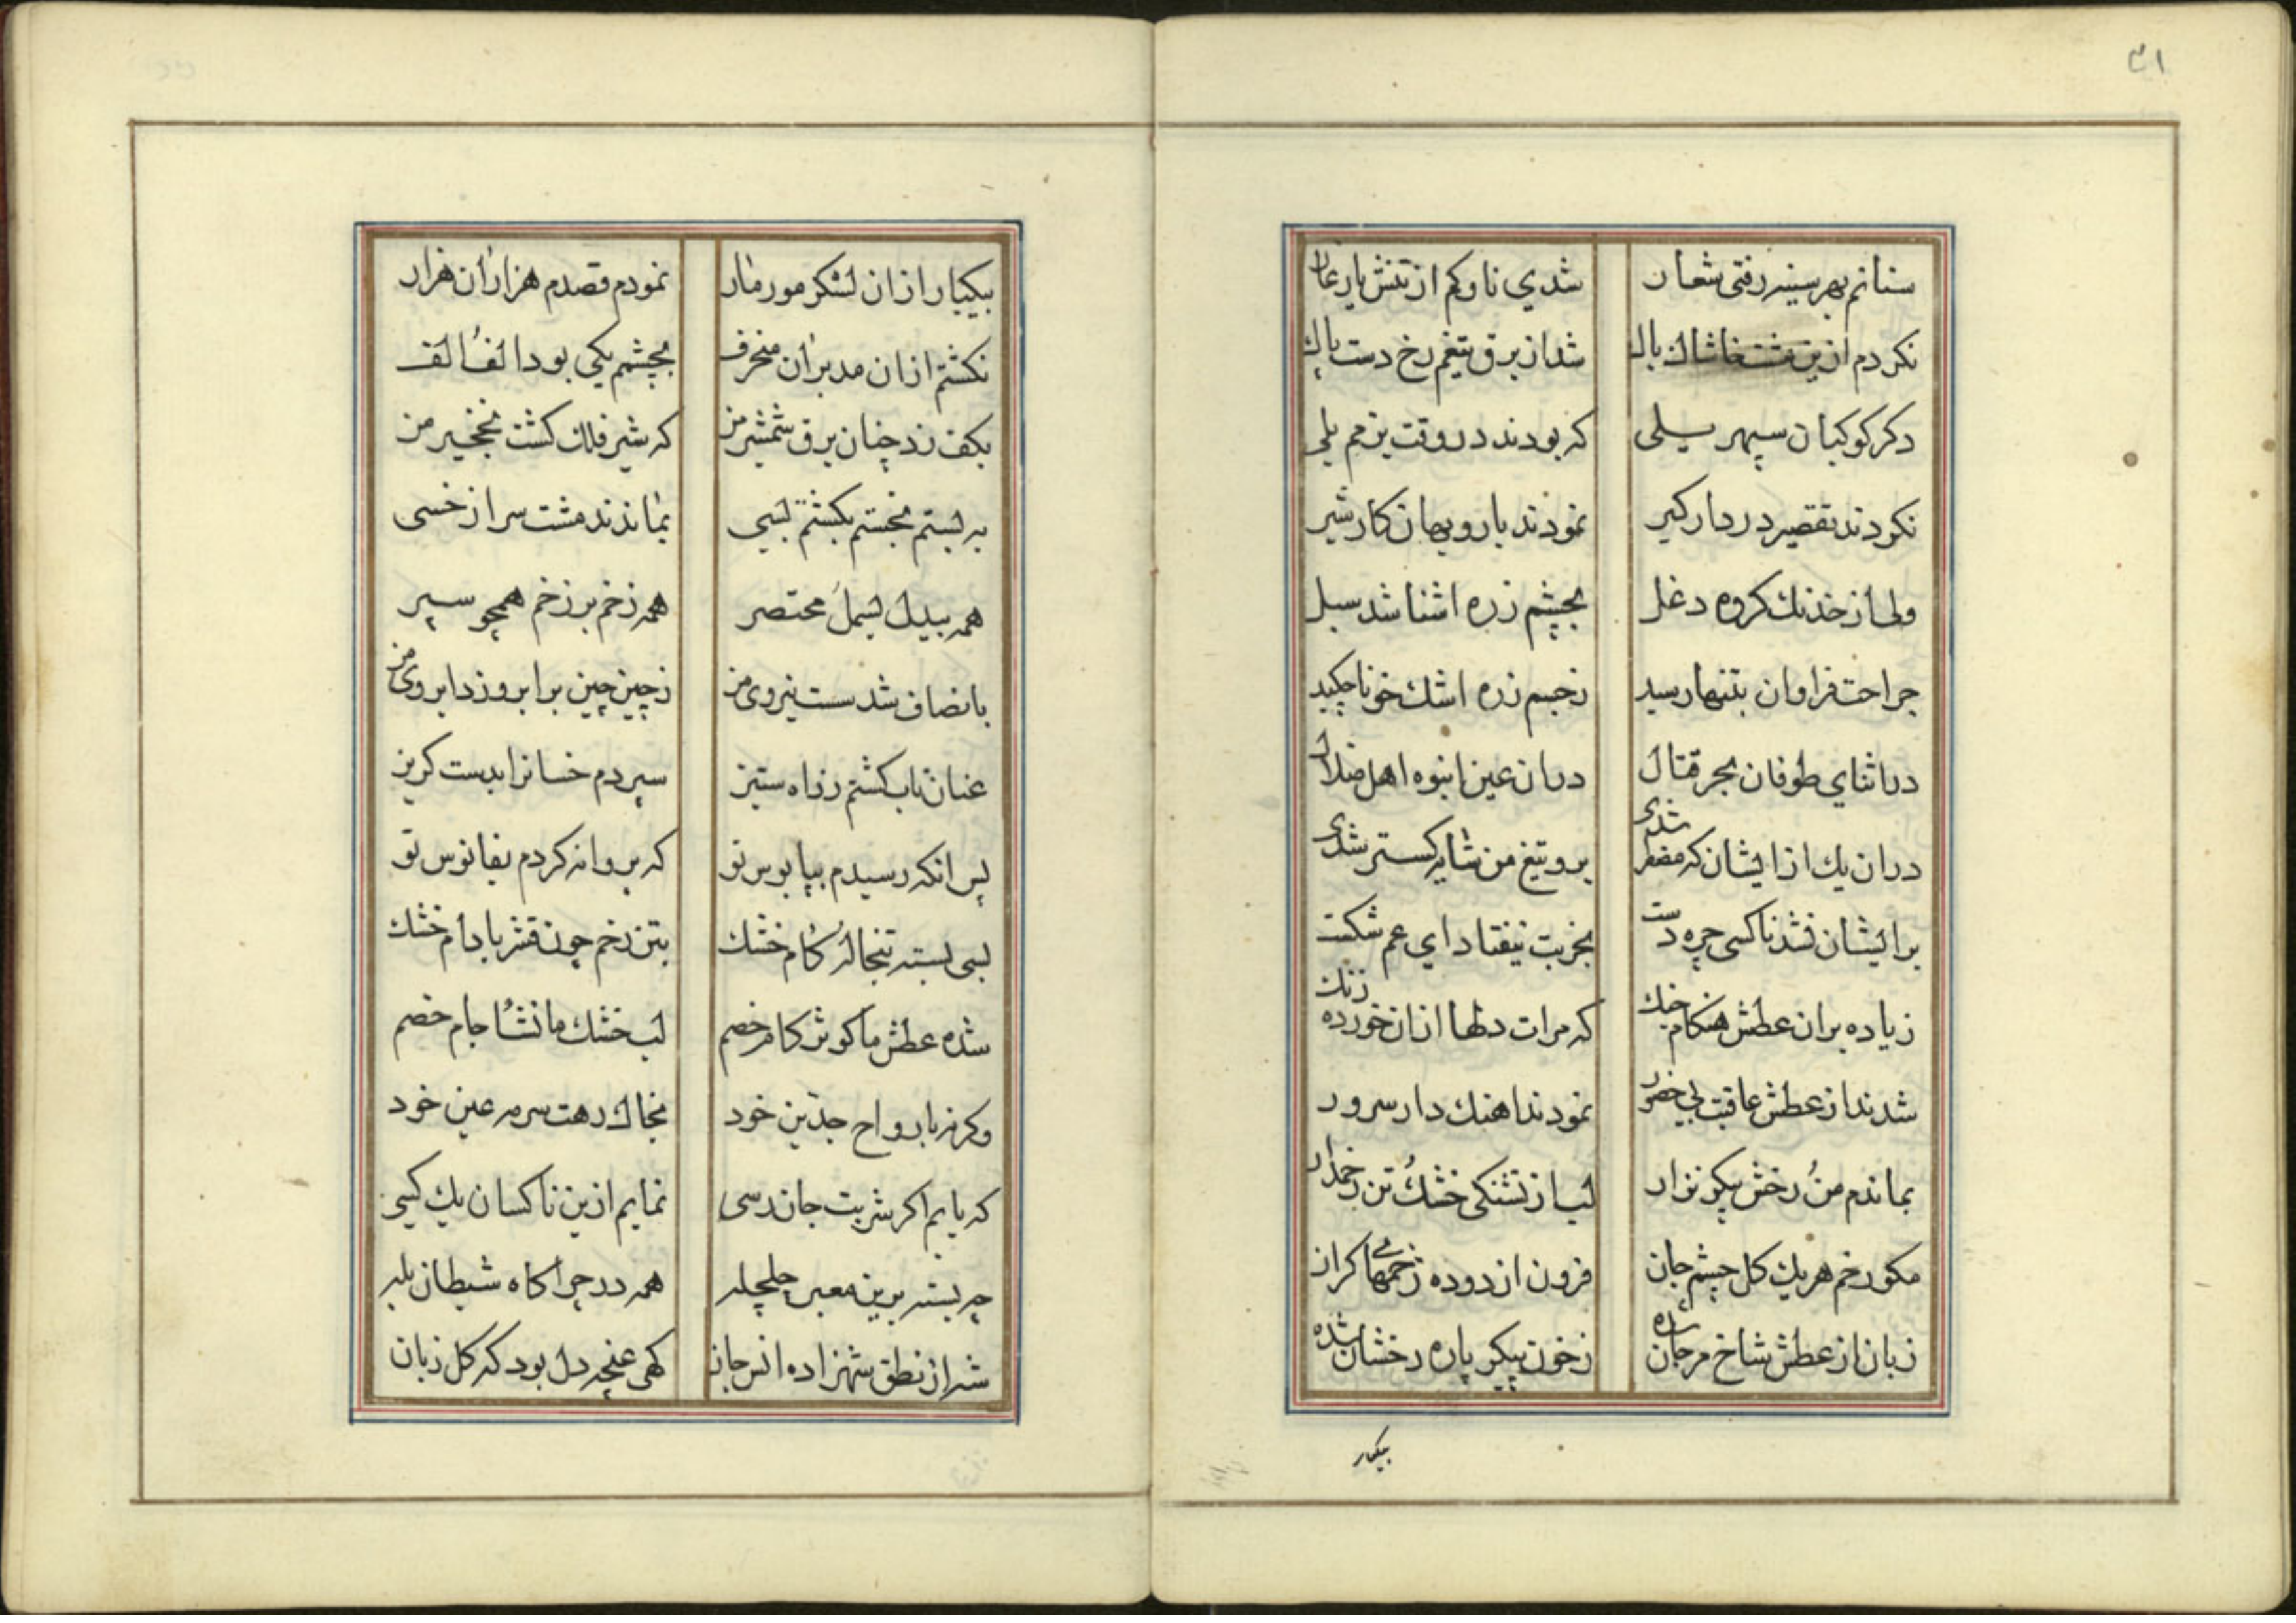 ۳۱
سنانم بهر سینه رفتی شعار
شدی ناوکم از تنش یار غار
نکردم ازین مشت خاشاک باک
شد از برق تیغم رخ دست پاک
دکر کوکبان سپهر یلی
که بودند در وقت بزمم بلی
نکردند تقصیر در دار کیر
نمودند با روبهان کار شیر
ولی از خدنک کروه دغل
بچشم زره اشنا شد سبل
جراحت فراوان بتنها رسید
زجسم زره اشک خونا چکید
در اثنای طوفان بحر قتال
در ان عین انبوه اهل ضلال
در ان یک از ایشان که مضطر شدی
برو تیغ من سایه کستر شدی
بر ایشان نشد ناکسی چیره دست
بخربت نیفتاد ای عم شکست
زیاده بران عطش هنکام جنک
که مرات دلها ازان خورده زنک
شدند از عطش عاقبت بی حضور
نمودند اهنک دار سرور
بماندم من رخش پیکر نزار
لب از تشنکی خشک تن زخمدار
مکو زخم هر یک کل چشم جان
فزون از دوده زخمهای کران
زبان از عطش شاخ مرجان شده
زخون پیکر پاره رخشان شده
بیکبار
بیکبار ازان لشکر مور مار
نمودم قصدم هزاران هزار
نکشتم ازان مدبران منحرف
بچشمم یکی بود الف الف
بکف زد چنان برق شمشیر من
که شیر فلک کشت نخجیر من
به بستم بخستم بکشتم بسی
نماندند مشت سر از خسی
همه بیدل بسمل مختصر
همه زخم بر زخم همچو سپر
بانصاف شد سست نیروی من
زچین چین بر ابرو زد ابروی من
عنان تاب کشتم ز راه ستیز
سپردم خسانرا بدست کریز
پس انکه رسیدم بپابوس تو
که پروانه کردم بفانوس تو
لبی بسته تبخاله کام خشک
بتن زخم چون قشر بادام خشک
شده عطش ما کوثر کام خصم
لب خشک ما نشا جام خصم
وکرنه بارواح جدین خود
بخاک رهت سرمه عین خود
که یابم اکر شربت جان دسی
نمایم ازین ناکسان یک کسی
چه بسته برین معبر چلچله
همه در چراکاه شیطان یله
شه از نطق شهزاده انس جان
کهی غنچه دل بود که کل زبان